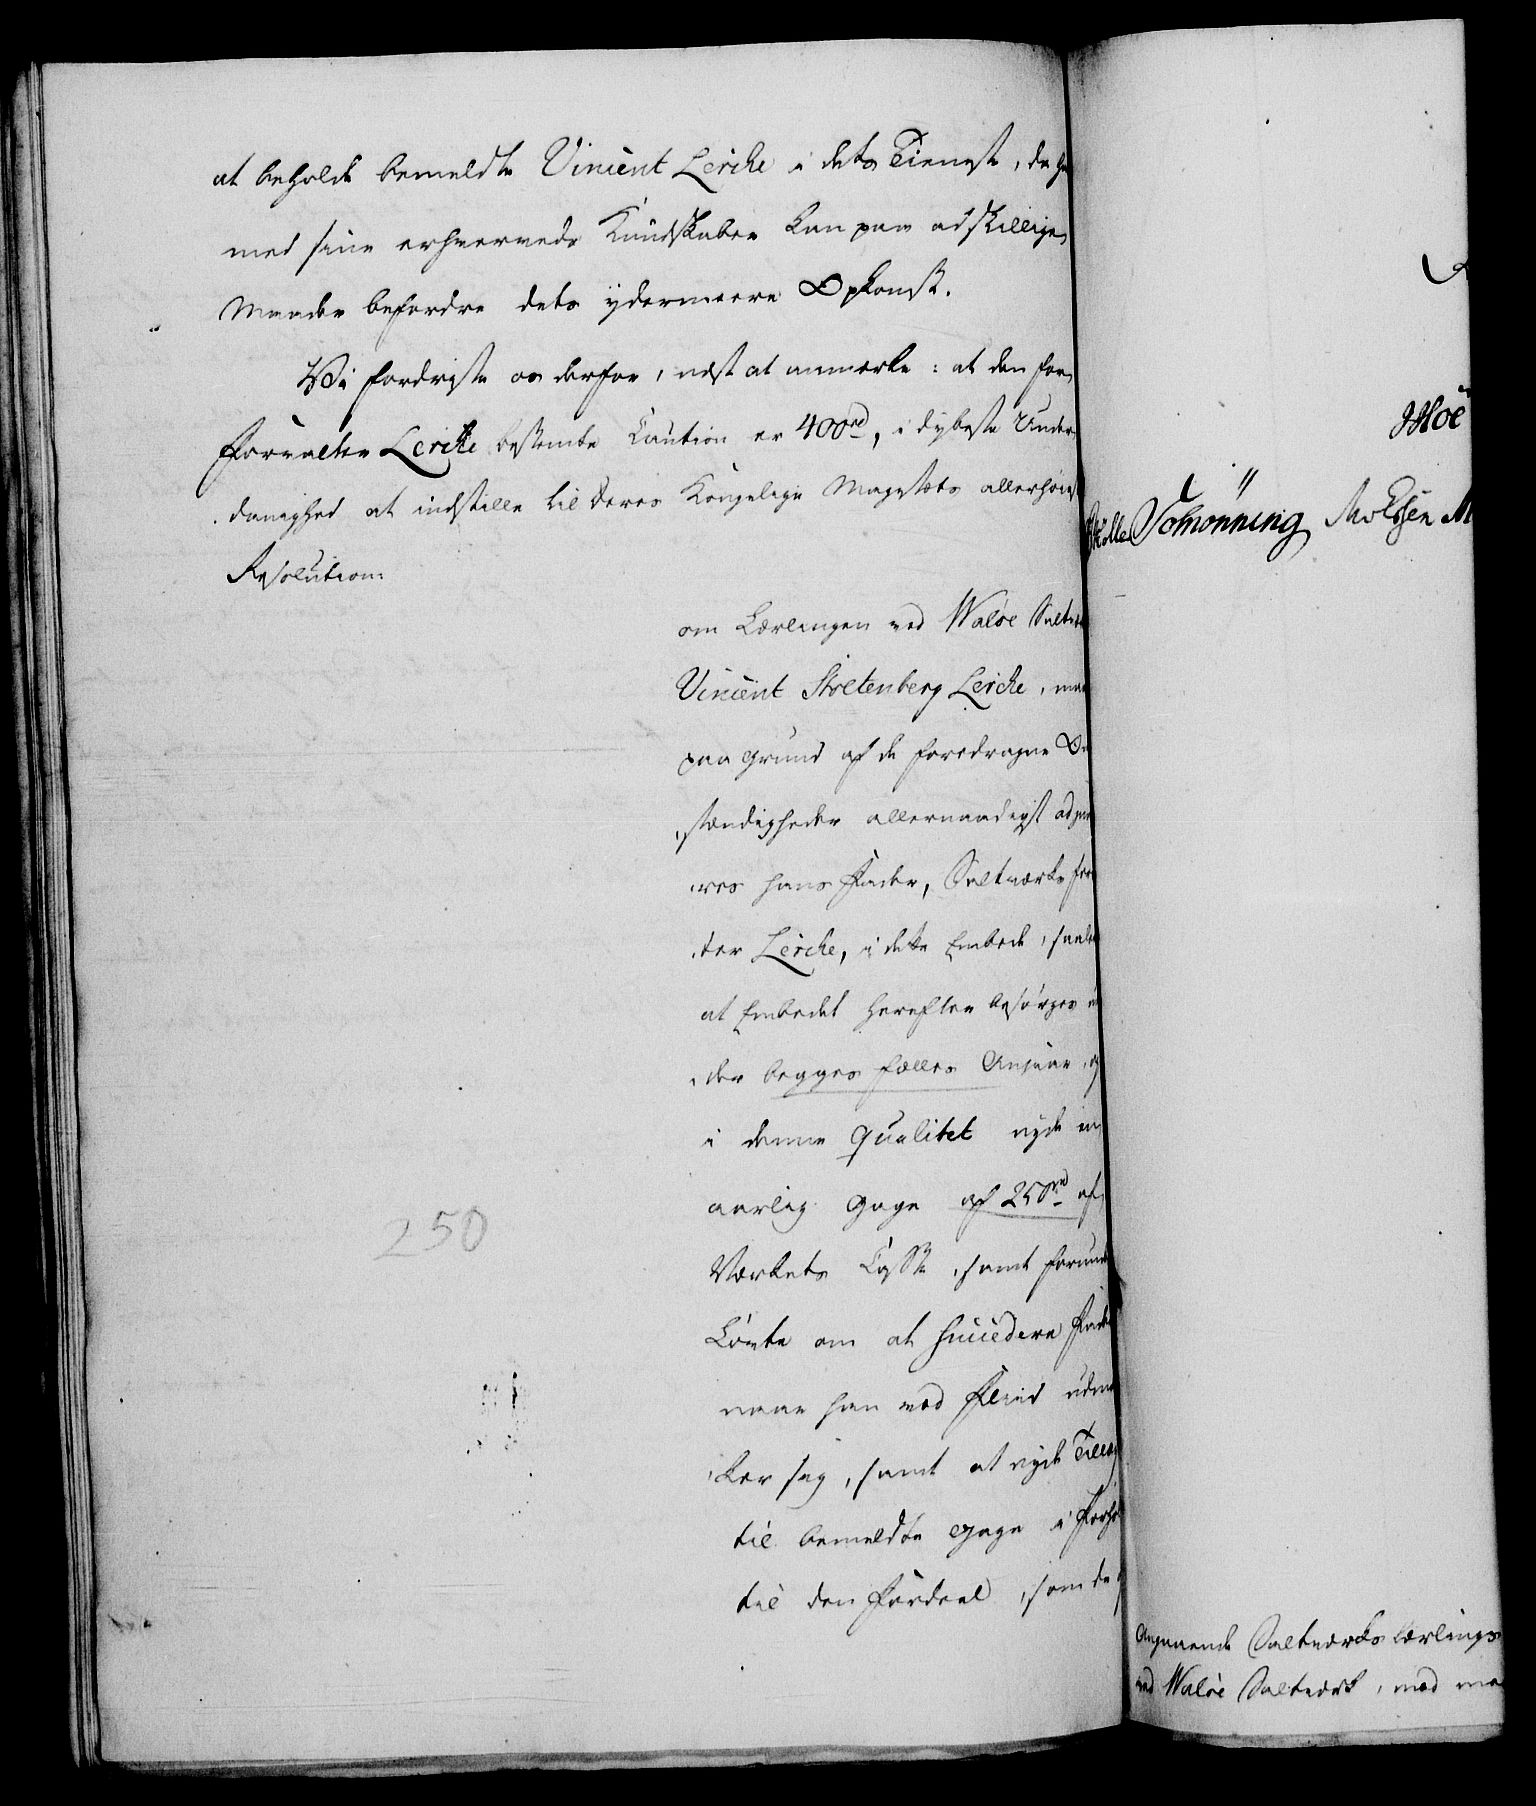 at beholde bemeldte Vincent Lerche i dets Tieneste, da ha
med sine erhvervede Kundskaber kan paa adskillige
Maader befordre dets ydermeere Opkomst.
Vi fordriste os derfor, næst at anmærke: at den for
Forvalter Lerche bestemte Caution er 400rd, i dybeste Under
danighed at indstille til Deres Kongelige Majestæts allerhøieste
Resolution:
om Lærlingen ved Waløe Saltvær
Vincent Stoltenberg Lerche, maa
paa Grund af de foredragne Om
stændigheder allernaadigst adjun
res hans Fader, Saltværks for
ter Lerche, i dette Embede, saale
at Embedet herefter besørges u
der begges fælles Ansvar, og
i denne Qualitet nyde en
aarlig Gage af 250rd af
Værkets Casse, samt forunde
Løvte om at succedere Fade
naar han ved Fliid udmæ
ker sig, samt at nyde Tillæg
til bemeldte Gage i Forho
til den Fordeel, som de
250
Moe
Schønning
Angaaende Saltværks Lærling
ved Waløe Saltværk, med me